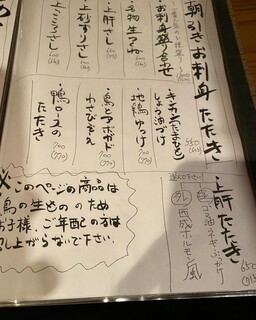 朝引きお刺身たたき
お刺身盛り合せ
・名物生つくね
・上肝さし
・上砂ずりさし
・上こころさし
・キンカン(たまひも)
しょう油づけ
550
・地鶏ゆっけ
700
(770)
・鳥とアボガド
わさびあえ
700
(770)
・鴨ロースの
たたき
700
(770)
・上肝たたき
650
塩 ごま油ネギぶっかけ
タレ 西成ホルモン風
※このページの商品は
鳥の生もののため
お子様、ご年配の方は
召し上がらないで下さい。